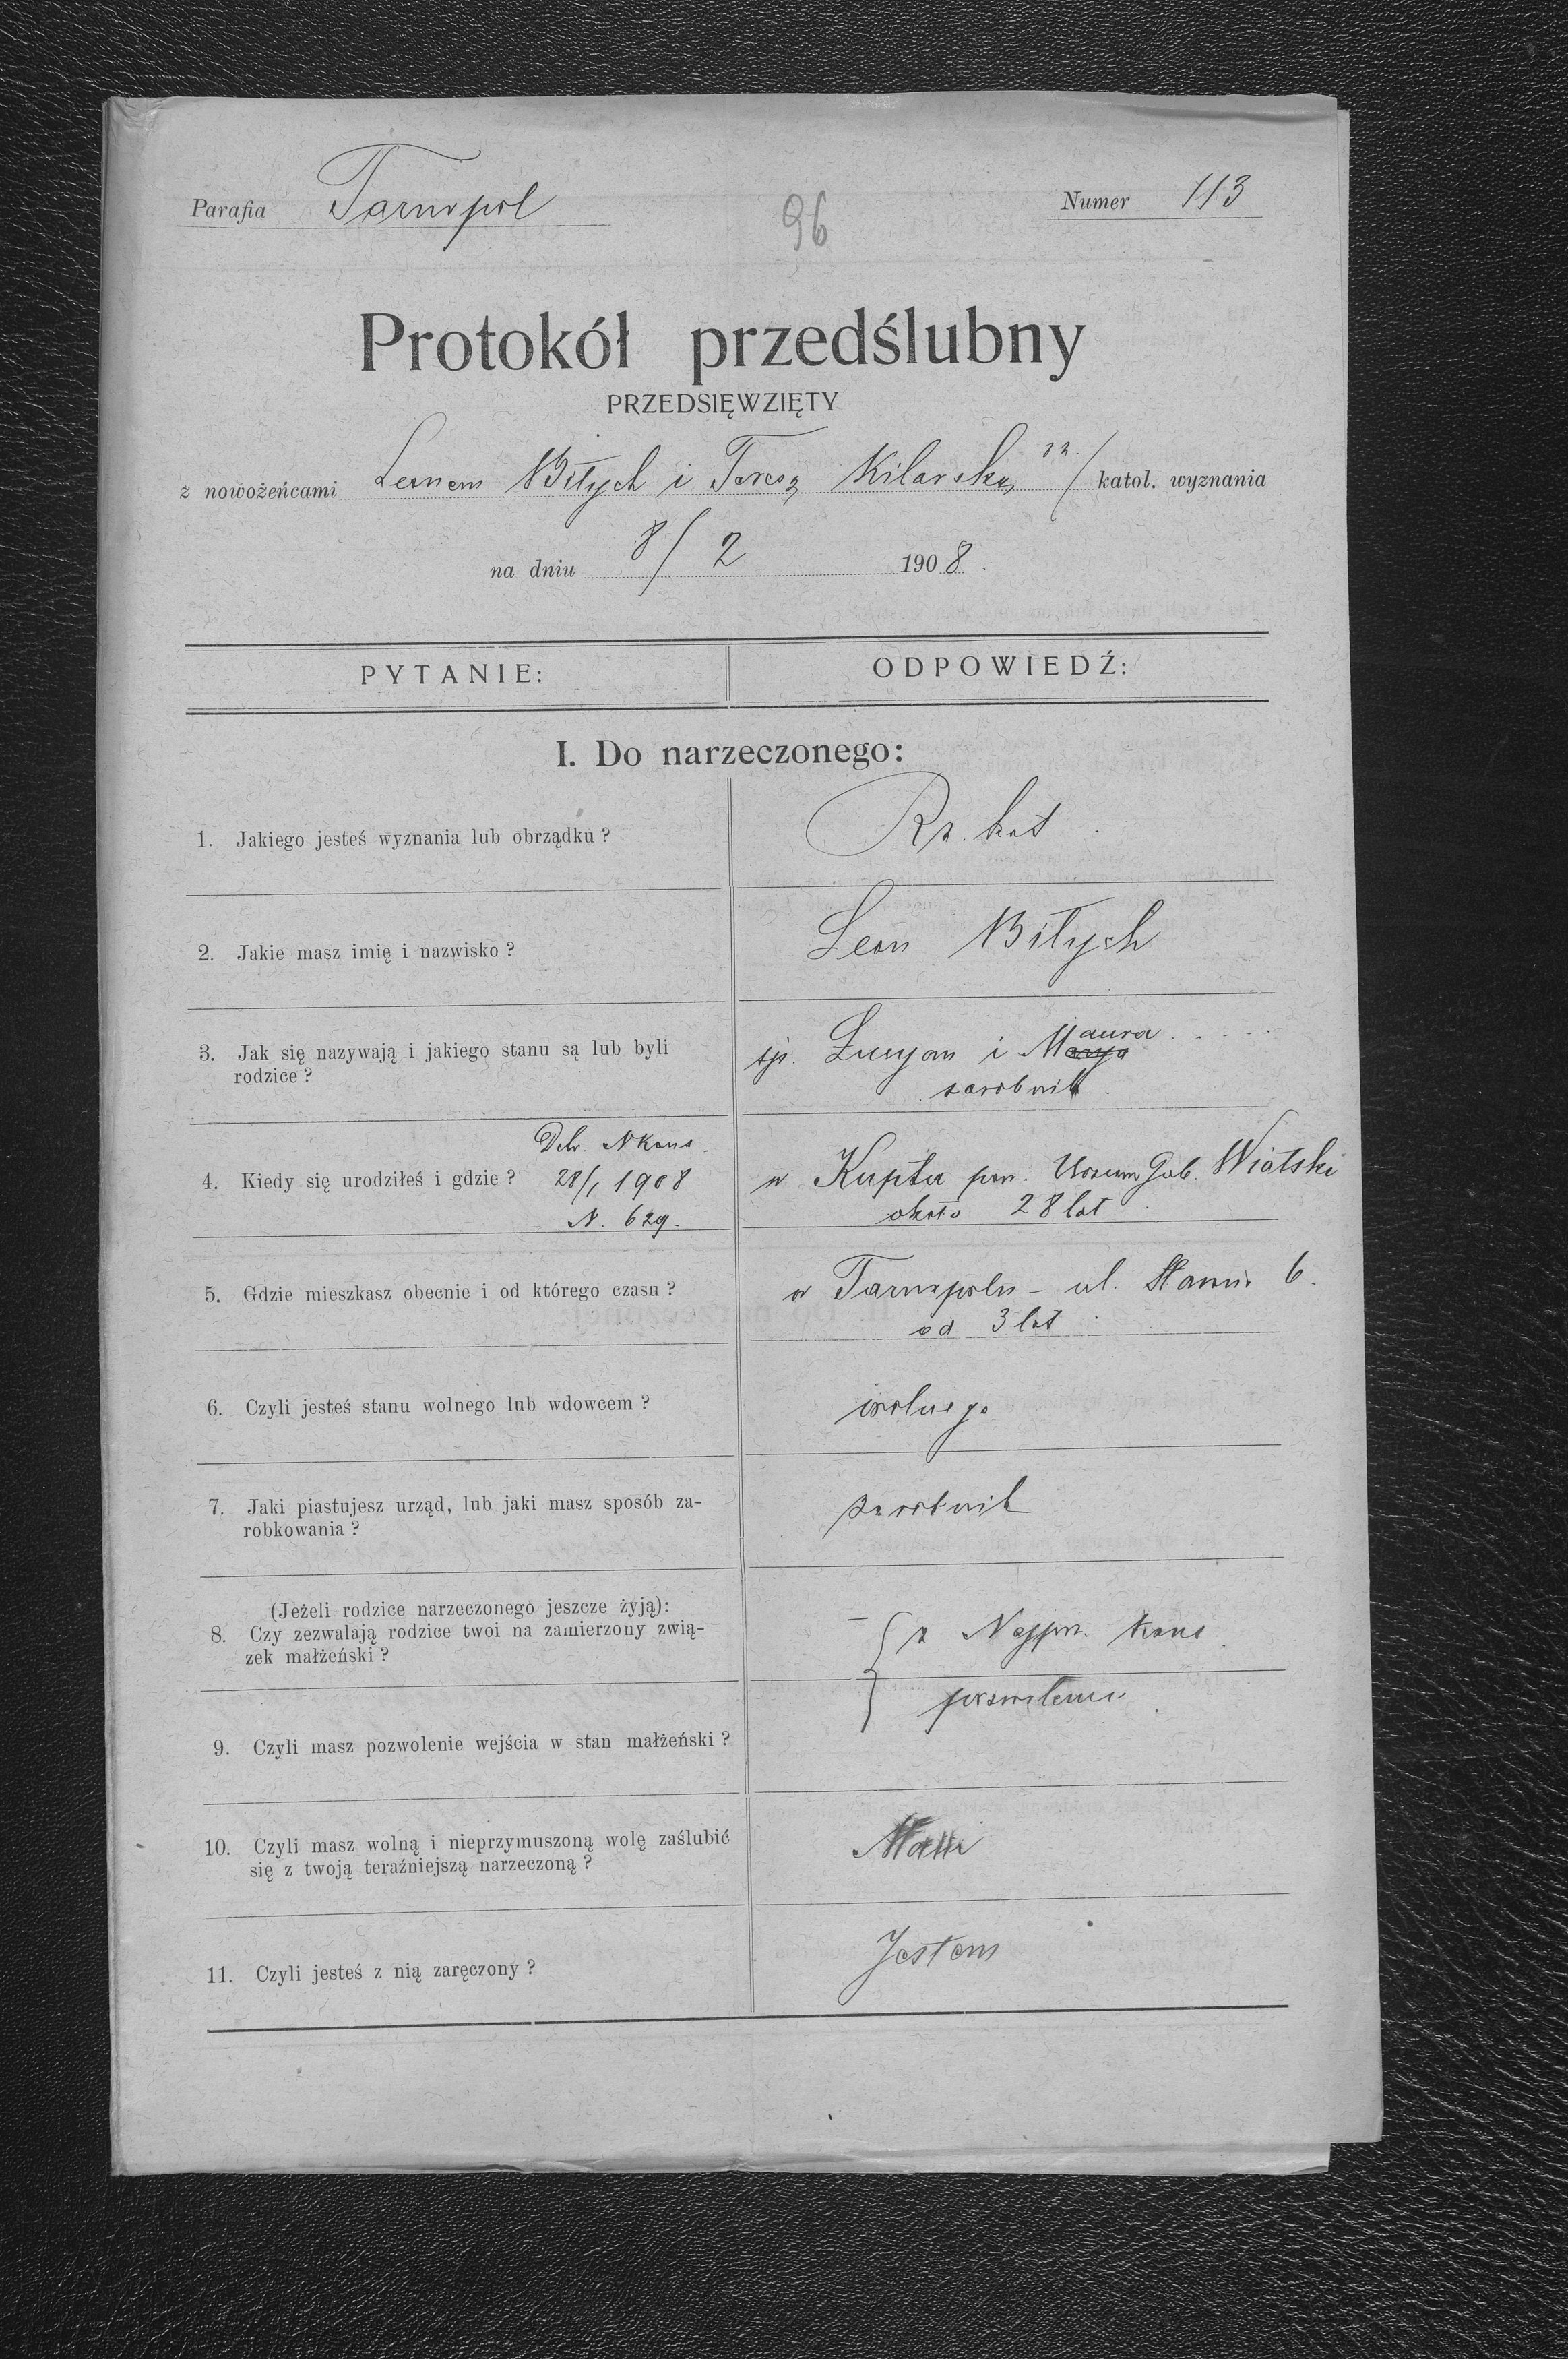 Parafia Tarnopol
96
Numer 113
Protokół przedślubny
PRZEDSIĘWZIĘTY
z nowożeńcami Leonem Biłych i Teresą Kilarską rz./ katol. wyznania
na dniu 8/2 1908.
PYTANIE:
ODPOWIEDŹ:
I. Do narzeczonego:
1. Jakiego jesteś wyznania lub obrządku ?
Rz. kat
2. Jakie masz imię i nazwisko ?
Leon Biłych
3. Jak się nazywają i jakiego stanu są lub byli
rodzice ?
śp. Łucyan i Maura
zarobnik
Dekr. NKons.
4. Kiedy się urodziłeś i gdzie ?
28/1 1908
N. 629.
w Kupta pow. Urzum Gub. Wiatski
około 28 lat
5. Gdzie mieszkasz obecnie i od którego czasu ?
w Tarnopolu - ul. 6.
od 3 lat
6. Czyli jesteś stanu wolnego lub wdowcem ?
wolnego
7. Jaki piastujesz urząd, lub jaki masz sposób za-
robkowania ?
zarobnik
(Jeżeli rodzice narzeczonego jeszcze żyją):
8. Czy zezwalają rodzice twoi na zamierzony zwią-
zek małżeński ?
— z Najprz. Kons.
pozwolenie
9. Czyli masz pozwolenie wejścia w stan małżeński ?
10. Czyli masz wolną i nieprzymuszoną wolę zaślubić
się z twoją teraźniejszą narzeczoną ?
Mam
11. Czyli jesteś z nią zaręczony ?
Jestem